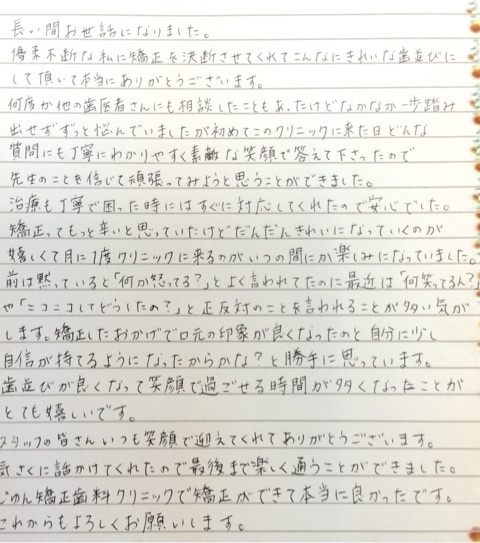 長い間お世話になりました。
優柔不断な私に矯正を決断させてくれてこんなにきれいな歯並びに
して頂いて本当にありがとうございます。
何度か他の歯医者さんにも相談したこともあったけどなかなか一歩踏み
出せずずっと悩んでいましたが初めてこのクリニックに来た日どんな
質問にも丁寧にわかりやすく素敵な笑顔で答えて下さったので
先生のことを信じて頑張ってみようと思うことができました。
治療も丁寧で困った時にはすぐに対応してくれたので安心でした。
矯正ってもっと辛いと思っていたけどだんだんきれいになっていくのが
嬉しくて月に1度クリニックに来るのがいつの間にか楽しみになっていました。
前は黙っていると「何か怒ってる?」とよく言われてたのに最近は「何笑ってるん?」
や「ニコニコしてどうしたの?」と正反対のことを言われることが多い気が
します。矯正したおかげで口元の印象が良くなったのと自分に少し
自信が持てるようになったからかな?と勝手に思っています。
歯並びが良くなって笑顔で過ごせる時間が多くなったことが
とても嬉しいです。
スタッフの皆さんいつも笑顔で迎えてくれてありがとうございます。
気さくに話かけてくれたので最後まで楽しく通うことができました。
じゅん矯正歯科クリニックで矯正ができて本当に良かったです。
これからもよろしくお願いします。